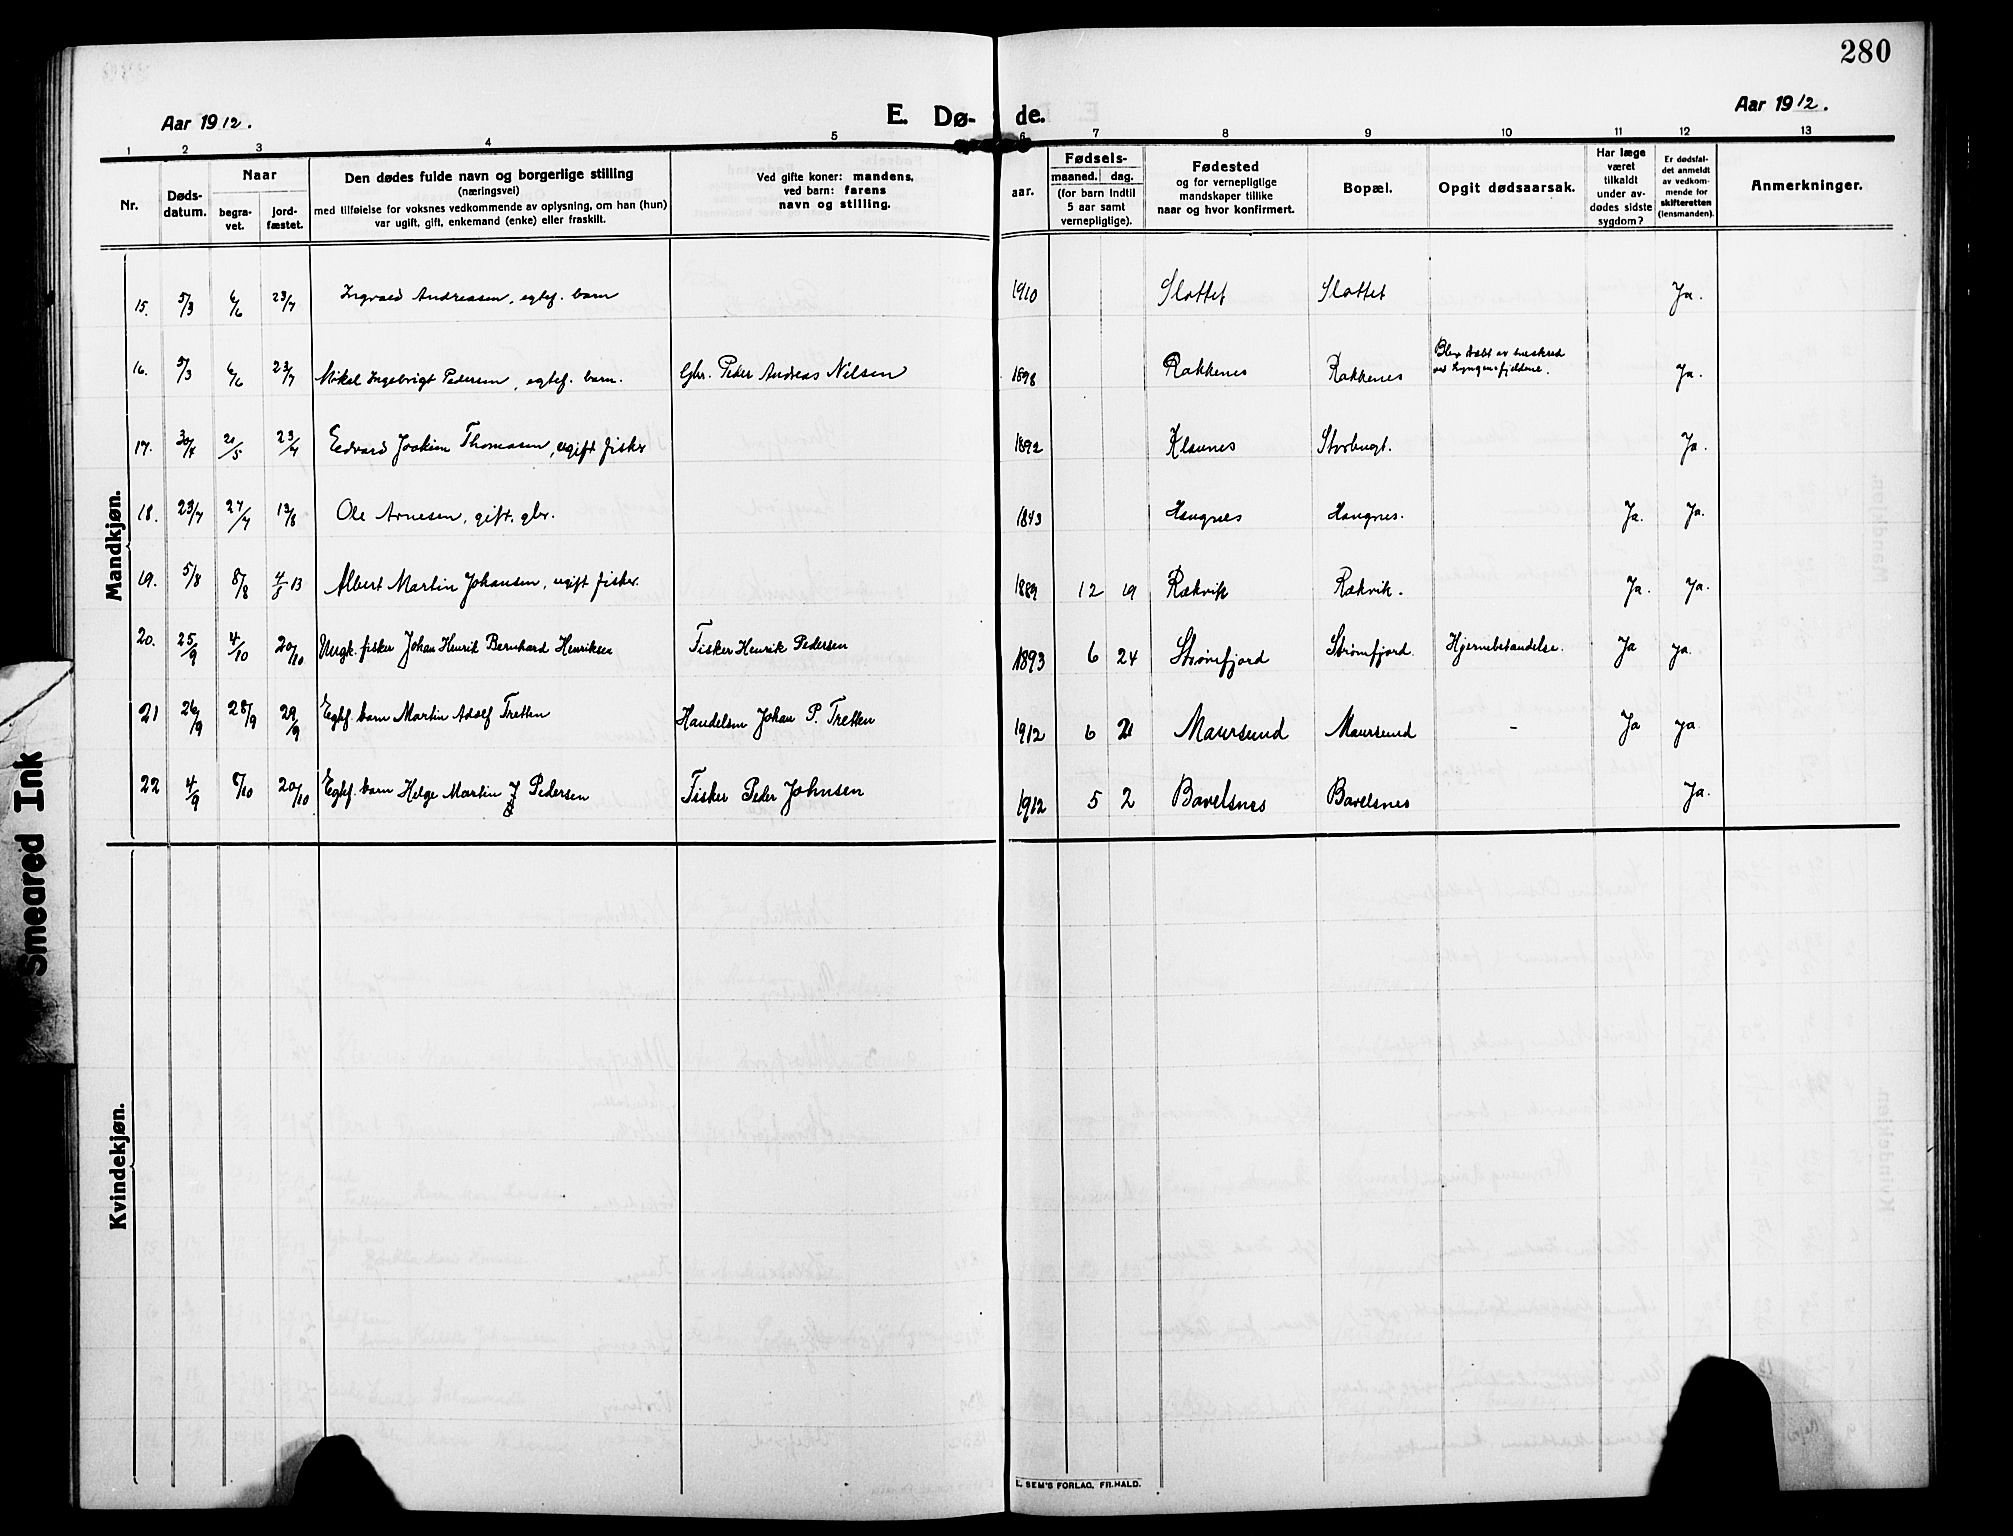 280
Aar 1912.
E. Dø-
de.
Aar 1912.
1 2 3 4 5 6 7 8 9 10 11 12 13
Nr.
Døds-
datum.
Naar
begra-
vet.
jord-
fæstet.
Den dødes fulde navn og borgerlige stilling
(næringsvei)
med tilføielse for voksnes vedkommende av oplysning, om han (hun)
var ugift, gift, enkemand (enke) eller fraskilt.
Ved gifte koner: mandens,
ved barn: farens
navn og stilling.
aar.
Fødsels-
maaned. dag.
(for barn indtil
5 aar samt
vernepligtige).
Fødested
og for vernepligtige
mandskaper tillike
naar og hvor konfirmert.
Bopæl.
Opgit dødsaarsak.
Har læge
været
tilkaldt
under av-
dødes sidste
sygdom?
Er dødsfal-
det anmeldt
av vedkom-
mende for
skifteretten
(lensmanden).
Anmerkninger.
Mandkjøn.
15. 5/3 6/6 23/7 Ingvald Andreassen, egtef. barn 1910 Slottet Slottet Ja.
16. 5/3 6/6 23/7 Mikal Ingebrigt Pedersen, egtef. barn. Gbr. Peder Andreas Nilsen 1898 Rakkenes Rakkenes Blev dræbt av sneskred
ved Lyngensfjeldene. Ja.
17. 30/4 21/5 23/7 Edvard Joakim Thomasen, ugift fisker 1892 Klaunes Storbugt. Ja.
18. 23/7 27/7 13/8 Ole Arnesen, gift, gbr. 1843 Haugnes Haugnes. Ja. Ja.
19. 5/8 8/8 4/5 13 Albert Martin Johansen, ugift fisker. 1889 12 19 Rækvik Rækvik. Ja. Ja.
20. 25/9 4/10 20/10 Ungk. fisker Johan Henrik Bernhard Henriksen Fisker Henrik Pedersen 1893 6 24 Strømfjord Strømfjord. Hjernebetændelse. Ja Ja.
21 26/9 28/9 29/9 Egtef. barn Martin Adolf Tretten Handelsm Johan P. Tretten 1912 6 21 Maursund Maursund - Ja Ja.
22 4/9 6/10 20/10 Egtef. barn Helge Martin J Pedersen Fisker Peder Johnsen 1912 5 2 Bavelsnes Bavelsnes Ja.
Kvindekjøn.
Smeared Ink
E. SEM'S FORLAG, FR.HALD.